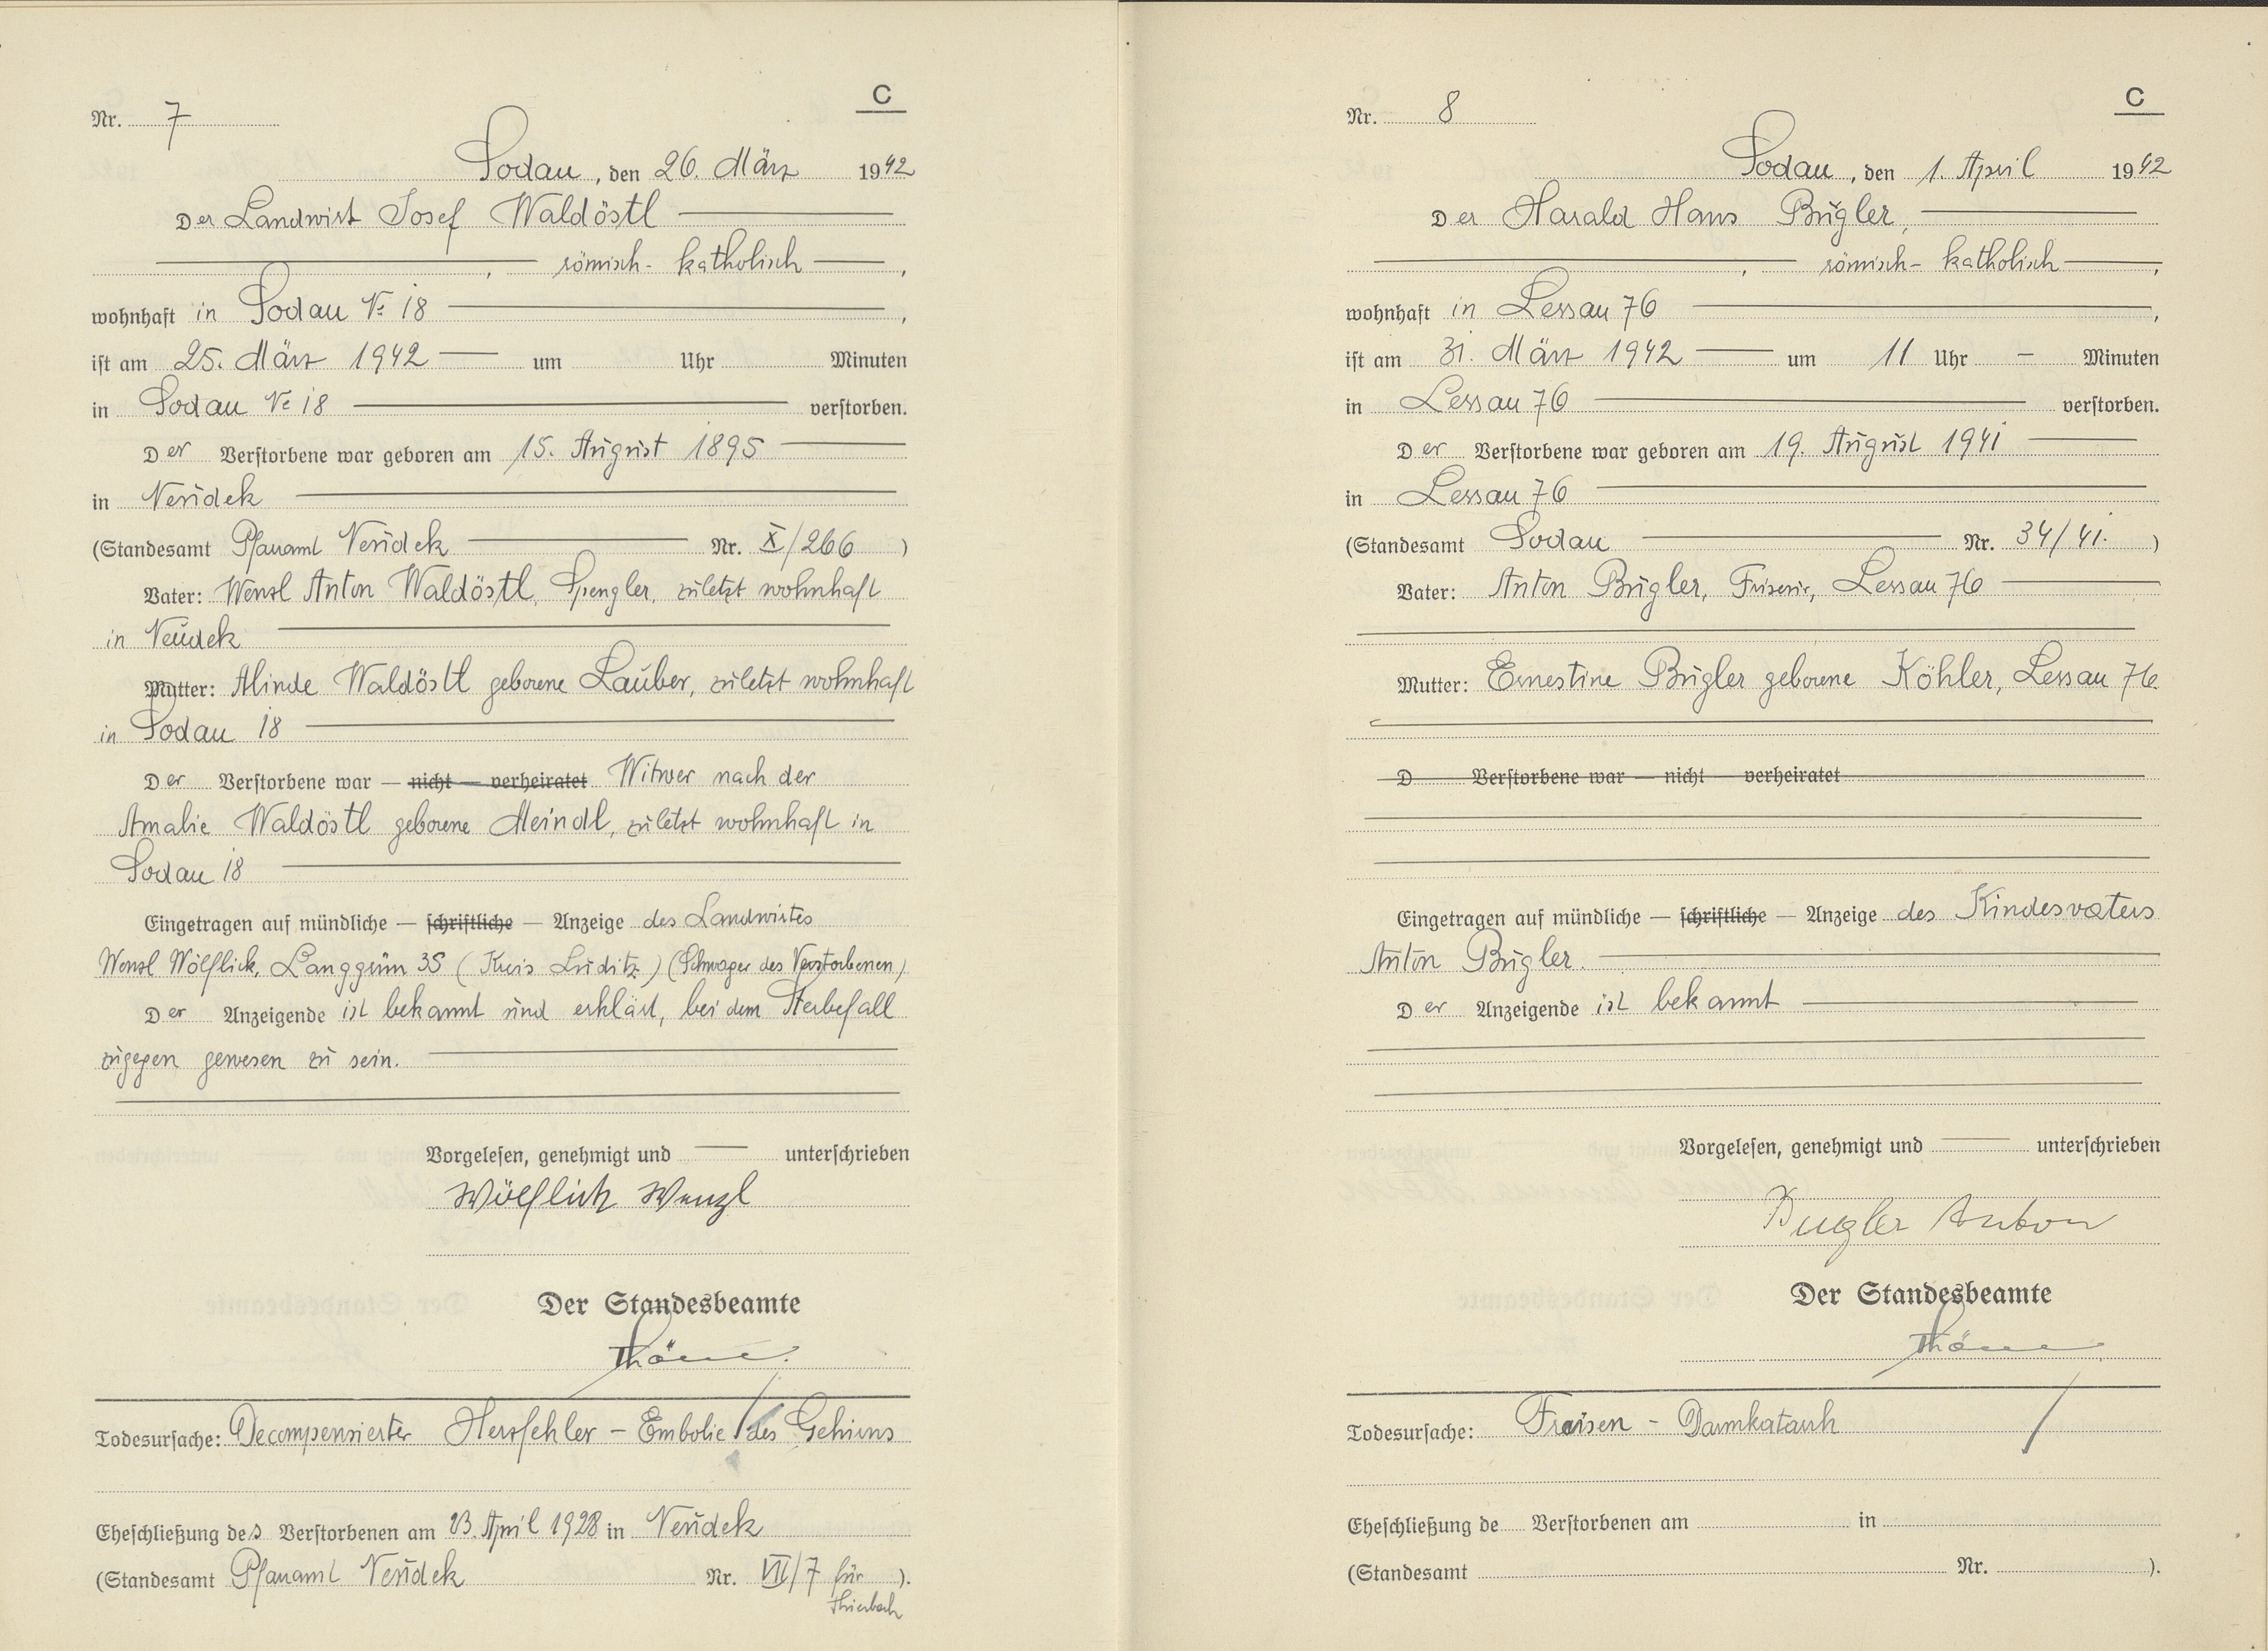 C
Nr. 7
Sodau, den 26. März 1942
Der Landwirt Josef Waldöstl
, römisch-katholisch,
wohnhaft in Sodau № 18,
ist am 25. März 1942 um Uhr Minuten
in Sodau № 18 verstorben.
Der Verstorbene war geboren am 15. August 1895
in Neudek
(Standesamt Pfarramt Neudek Nr. X/266)
Vater: Wenzl Anton Waldöstl, Spengler, zuletzt wohnhaft
in Neudek
Mutter: Alinde Waldöstl geborene Lauber, zuletzt wohnhaft
in Sodau 18
Der Verstorbene war — nicht — verheiratet Witwer nach der
Amalie Waldöstl geborene Meindl, zuletzt wohnhaft in
Sodau 18
Eingetragen auf mündliche — schriftliche — Anzeige des Landwirtes
Wenzl Wölflick, Langgrün 35 (Kreis Luditz) (Schwager des Verstorbenen)
Der Anzeigende ist bekannt und erklärt, bei dem Sterbefall
zugegen gewesen zu sein.
Vorgelesen, genehmigt und — unterschrieben
Wölflick Wenzl
Der Standesbeamte
Todesursache: Decompensierter Herzfehler - Embolie des Gehirns
Eheschließung des Verstorbenen am 23. April 1928 in Neudek
(Standesamt Pfarramt Neudek Nr. VII/7 für ).
Thierbach
C
Nr. 8
Sodau, den 1. April 1942
Der Harald Hans Bugler,
, römisch-katholisch,
wohnhaft in Lessau 76,
ist am 31. März 1942 um 11 Uhr – Minuten
in Lessau 76 verstorben.
Der Verstorbene war geboren am 19. August 1941
in Lessau 76
(Standesamt Sodau Nr. 34/41.)
Vater: Anton Bugler, Friseur, Lessau 76
Mutter: Ernestine Bugler geborene Köhler, Lessau 76.
D Verstorbene war — nicht — verheiratet
Eingetragen auf mündliche — schriftliche — Anzeige des Kindesvaters
Anton Bugler.
Der Anzeigende ist bekannt
Vorgelesen, genehmigt und — unterschrieben
Bugler Anton
Der Standesbeamte
Todesursache: Fraisen - Darmkatarrh
Eheschließung de Verstorbenen am in
(Standesamt Nr. ).